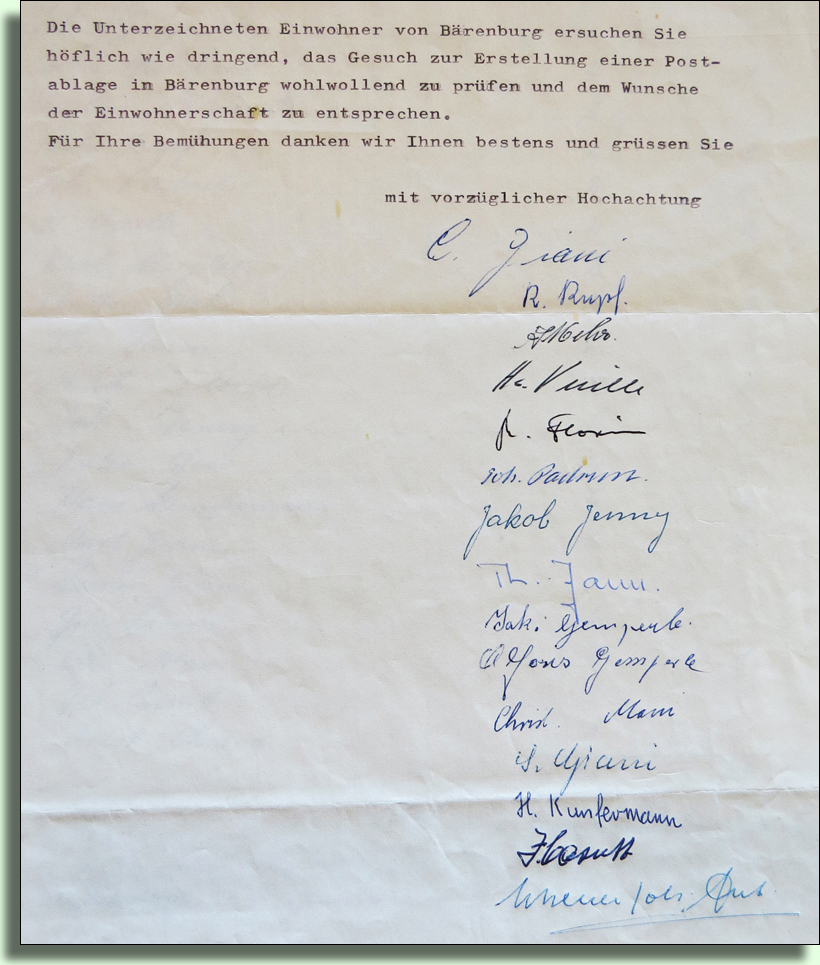 Die Unterzeichneten Einwohner von Bärenburg ersuchen Sie
höflich wie dringend, das Gesuch zur Erstellung einer Post-
ablage in Bärenburg wohlwollend zu prüfen und dem Wunsche
der Einwohnerschaft zu entsprechen.
Für Ihre Bemühungen danken wir Ihnen bestens und grüssen Sie
mit vorzüglicher Hochachtung
C. Giani
R. Rupf.
R. Florin
Joh. Padrun.
Jakob Jenny
Th.
Gemperle.
Alfons Gemperle
Christ.
S. Giani
H. Kunfermann